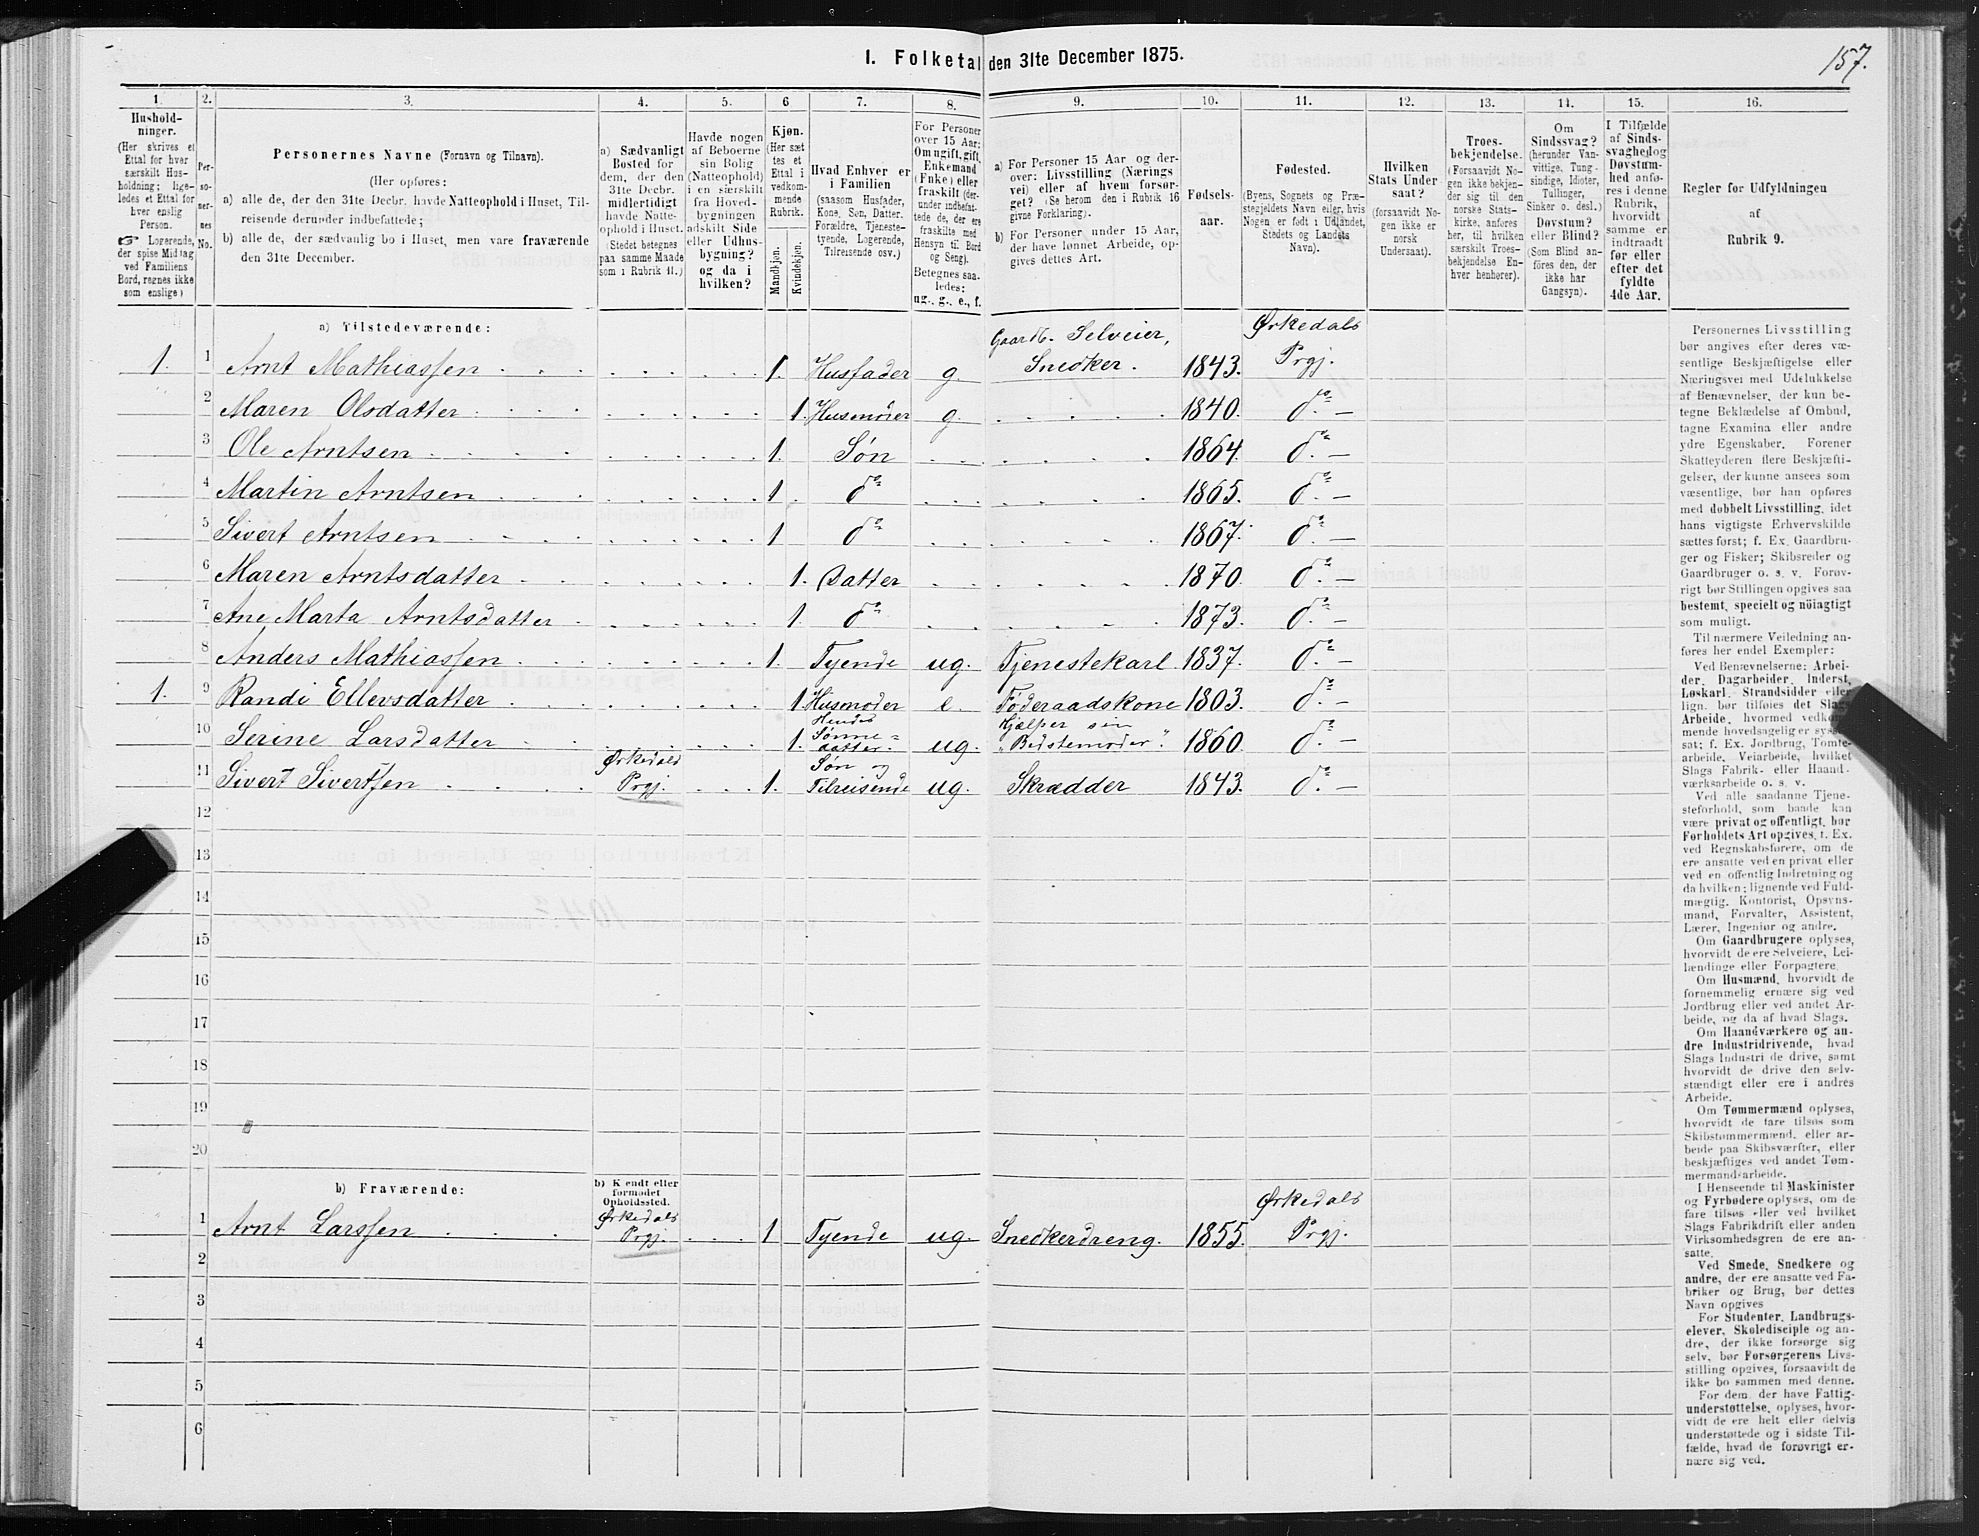 157.
1. Folketal den 31te December 1875.
1. 2. 3. 4. 5. 6 7. 8. 9. 10. 11. 12. 13. 14. 15. 16.
Hushold-
ninger.
(Her skrives et
Ettal for hver
særskilt Hus-
holdning; lige-
ledes et Ettal for
hver enslig
Person.
☞ Logerende,
der spise Middag
ved Familiens
Bord, regnes ikke
som enslige)
Per-
so-
ner-
nes
No.
Personernes Navne (Fornavn og Tilnavn).
(Her opføres:
a) alle de, der den 31te Decbr. havde Natteophold i Huset, Til-
reisende derunder indbefattede;
b) alle de, der sædvanlig bo i Huset, men vare fraværende
den 31te December.
a) Sædvanligt
Bosted for
dem, der den
31te Decbr.
midlertidigt
havde Natte-
ophold i Huset.
(Stedet betegnes
paa samme Maade
som i Rubrik 11.)
Havde nogen
af Beboerne
sin Bolig
(Natteophold)
i en særskilt
fra Hoved-
bygningen
adskilt Side
eller Udhus-
bygning?
og da i
hvilken?
Kjøn.
(Her sæt
tes et
Ettal i
vedkom-
mende
Rubrik.
Mandkjøn.
Kvindekjøn.
Hvad Enhver er
i Familien
(saasom Husfader,
Kone, Søn, Datter.
Forældre, Tjeneste-
tyende, Logerende,
Tilreisende osv.)
For Personer
over 15 Aar:
Om ugift, gift,
Enkemand
(Enke) eller
fraskilt (der-
under indbefat-
tede de, der ere
fraskilte med
Hensyn til Bord
og Seng).
Betegnes saa-
ledes:
ug., g., e., f.
a) For Personer 15 Aar og der-
over: Livsstilling (Nærings
vei) eller af hvem forsør-
get? (Se herom den i Rubrik 16
givne Forklaring).
b) For Personer under 15 Aar,
der have lønnet Arbeide, op-
gives dettes Art.
Fødsels-
aar.
Fødested.
(Byens, Sognets og Præ-
stegjeldets Navn eller, hvis
Nogen er født i Udlandet,
Stedets og Landets
Navn).
Hvilken
Stats Under
saat?
(forsaavidt No-
gen ikke er
norsk
Undersaat).
Troes-
bekjendelse.
(Forsaavidt No-
gen ikke bekjen-
der sig til den
norske Stats-
kirke, anføres
her, til hvilken
særskilt Troes-
bekjendelse En-
hver henhører).
Om
Sindssvag?
(herunder Van-
vittige, Tung-
sindige, Idioter,
Tullinger,
Sinker o. desl.)
Døvstum?
eller Blind?
(Som Blind an-
føres den, der
ikke har
Gangsyn).
I Tilfælde
af Sinds-
svaghed og
Døvstum-
hed anfø-
res i denne
Rubrik,
hvorvidt
samme er
indtraadt
før eller
efter det
fyldte
4de Aar.
Regler for Udfyldningen
af
Rubrik 9.
a) Tilstedeværende:
1. 1 Arnt Mathiassen 1. Husfader g. Gaardb. Selveier, Snedker. 1843. Ørkedals Prgj.
2 Maren Olsdatter 1. Husmoder g. 1840. do. —
3 Ole Arntsen 1. Søn 1864. do. —
4 Martin Arntsen 1. do 1865. do. —
5 Sivert Arntsen 1 do 1867. do. —
6 Maren Arntsdatter 1. Datter 1870. do. —
7 Ane Marta Arntsdatter 1. do 1873. do. —
8 Anders Mathiassen 1. Tyende ug. Tjenestekarl 1837. do. —
1. 9 Randi Ellevsdatter 1. Husmoder e. Föderaadskone 1803. do. —
10 Serine Larsdatter 1. Hendes Sønne=datter. ug. Hjælper sin "Bedstemoder". 1860. do. —
11 Sivert Sivertsen Ørkedals Prgj. 1. Søn og Tilreisende ug. Skrædder 1843. do. —
12
13
14
15
16
17
18
19
20
b) Fraværende:
b) Kendt eller
formodet
Opholdssted.
1 Arnt Larssen Ørkedals Prgj. 1 Tyende ug. Snedkerdreng. 1855. Ørkedals Prgj.
2
3
4
5
6
Personernes Livsstilling
bør angives efter deres væ-
sentlige Beskjæftigelse eller
Næringsvei med Udelukkelse
af Benævnelser, der kun be-
tegne Beklædelse af Ombud,
tagne Examina eller andre
ydre Egenskaber. Forener
Skatteyderen flere Beskjæfti-
gelser, der kunne ansees som
væsentlige, bør han opføres
med dobbelt Livsstilling, idet
hans vigtigste Erhvervskilde
sættes først; f. Ex. Gaardbru-
ger og Fisker; Skibsreder og
Gaardbruger o. s. v. Forøv-
rigt bør Stillingen opgives saa
bestemt, specielt og nöiagtigt
som muligt.
Til nærmere Veiledning an-
føres her endel Exempler:
Ved Benævnelserne: Arbei-
der, Dagarbeider, Inderst,
Løskarl, Strandsidder eller
lign. bør tilføies det Slags
Arbeide, hvormed vedkom-
mende hovedsagelig er syssel-
sat; f. Ex. Jordbrug, Tomte-
arbeide, Veiarbeide, hvilket
Slags Fabrik- eller Haand-
værksarbeide o. s. v.
Ved alle saadanne Tjene-
steforhold, som baade kan
være privat og offentligt, bør
Forholdets Art opgives, f. Ex.
ved Regnskabsførere, om de
ere ansatte ved en privat eller
ved en offentlig Indretning og
da hvilken; lignende ved Fuld-
mægtig, Kontorist, Opsyns-
mand, Forvalter, Assistent,
Lærer, Ingeniør og andre.
Om Gaardbrugere oplyses,
hvorvidt de ere Selveiere, Lei-
lændinge eller Forpagtere.
Om Husmænd, hvorvidt de
fornemmelig ernære sig ved
Jordbrug eller ved andet Ar-
beide, og da af hvad Slags.
Om Haandværkere og an-
dre Industridrivende, hvad
Slags Industri de drive, samt
hvorvidt de drive den selv-
stændigt eller ere i andres
Arbeide.
Om Tømmermænd oplyses,
hvorvidt de fare tilsøs som
Skibstømmermænd, eller ar-
beide paa Skibsværfter, eller
beskjæftiges ved andet Tøm-
mermandsarbeide.
I Henseende til Maskinister
og Fyrbødere oplyses, om de
fare tilsøs eller ved hvilket
Slags Fabrikdrift eller anden
Virksomhedsgren de ere an-
satte.
Ved Smede, Snedkere og
andre, der ere ansatte ved Fa-
briker og Brug, bør dettes
Navn opgives
For Studenter, Landbrugs-
elever, Skoledisciple og an-
dre, der ikke forsørge sig
selv, bør Forsørgerens Livs-
stilling opgives, forsaavidt de
ikke bo sammen med denne.
For dem, der have Fattig-
understøttelse, oplyses, hvor-
vidt de ere helt eller delvis
understøttede og i sidste Til-
fælde, hvad de forøvrigt er-
nære sig ved.